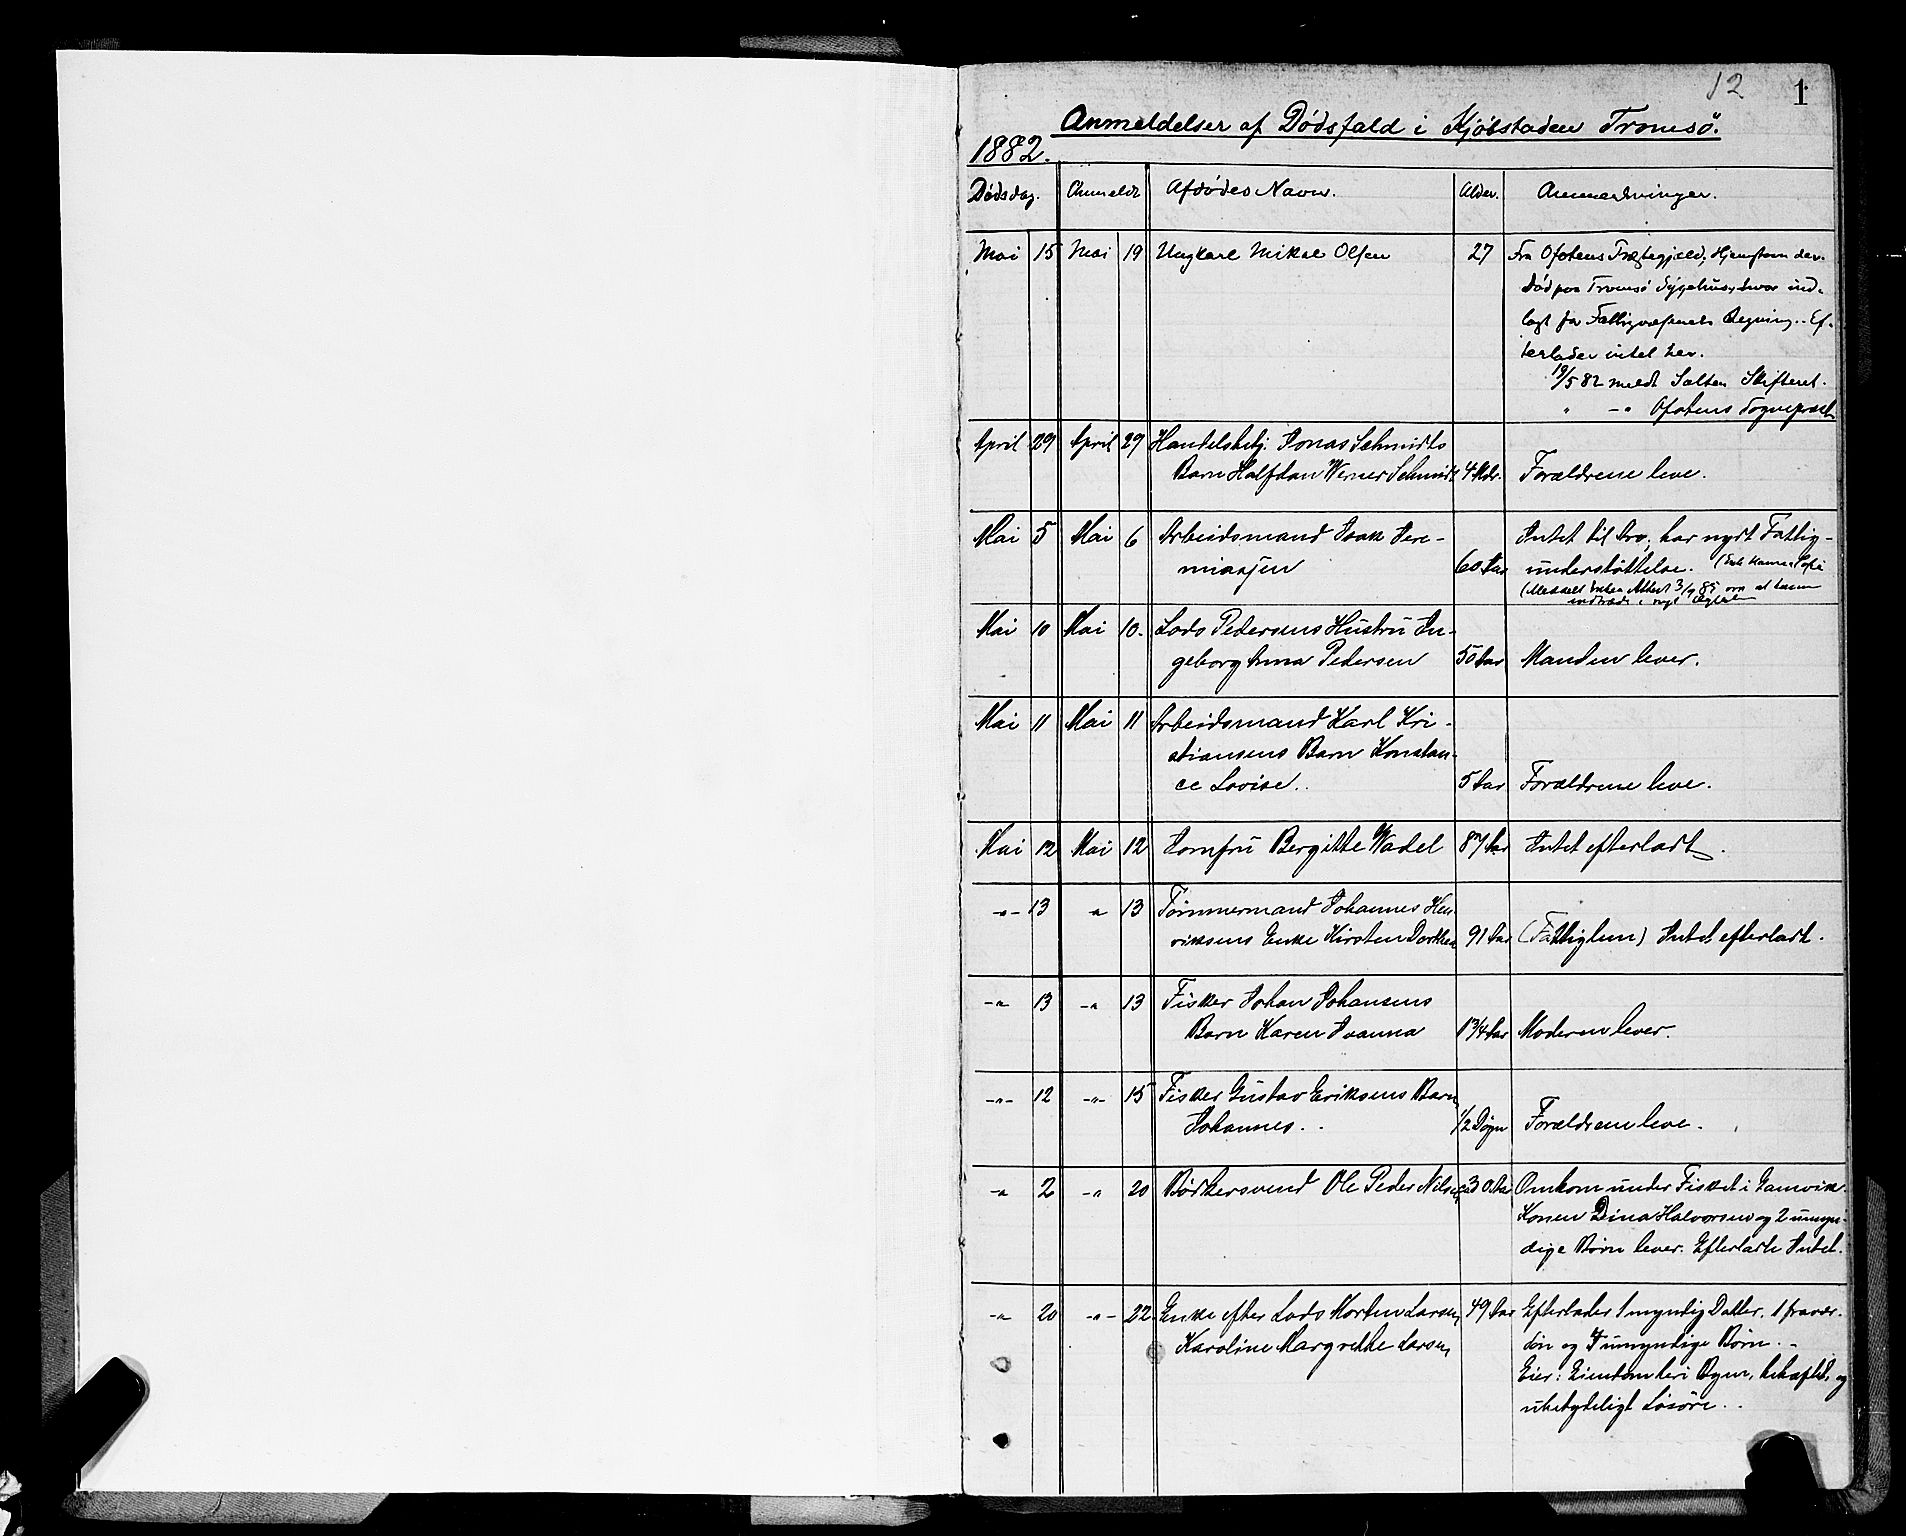 12 1
Anmeldelser af Dødsfald i Kjøbstaden Tromsø.
1882.
Dødsdag. Anmeldt Afdødes Navn. Alder. Anmærkninger.
Mai 15 Mai 19 Ungkarl Mikal Olsen 27 Fra Ofotens Præstegjæld, Hjemstavn der.
Død paa Tromsø Sygehus, hvor ind-
lagt for Fattigvæsenets Regning. Ef-
terlader intet her.
19/5 82 meldt Salten Skifteret.
" -"- Ofotens Sognepræst
April 29 April 29 Handelsbetj. Jonas Schmidts
Barn Halfdan Werner Schmidt 4 Mdr. Forældrene leve.
Mai 5 Mai 6 Arbeidsmand Isak Jere-
miasen 60 Aar
Intet til Arv, har nydt Fattig-
understøttelse.
(Meddelt Enken Attest 3/9 85 om at
Mai 10 Mai 10. Lods Pedersens Hustru In-
geborg Anna Pedersen 50 Aar Manden lever.
Mai 11 Mai 11 Arbeidsmand Karl Kri-
stiansens Barn Konstan-
ce Lovise.. 5 Aar Forældrene leve.
Mai 12 Mai 12 Jomfru Bergitte Wadel 87 Aar Intet efterladt.
-"- 13 " 13 Tømmermand Johannes Hen-
riksens Enke Kirsten Dorthea 91 Aar (Fattiglem) Intet efterladt.
-"- 13 -"- 13 Fisker Johan Johansens
Barn Karen Joanna 1 3/4 Aar Moderen lever.
-"- 12 -"- 15 Fisker Gustav Eriksens Barn
Johannes.. 1/2 Døgn Forældrene leve.
-"- 2 -"- 20 Bødkersvend Ole Peder Nilsen 30 Aar Omkom under Fisket i Gamvik.
Konen Dina Halvorsen og 2 umyn-
dige Børn lever. Efterladte Intet.
-"- 20 -"- 22. Enke efter Lods Morten Larsen, 49 Aar Efterlader 1 myndig Datter, 1 fravær-
Karoline Margrethe Larsen,
og umyndige Børn. -
Eier: Eiendom her i Byen, behæftet, og
ubetydeligt Løsøre..